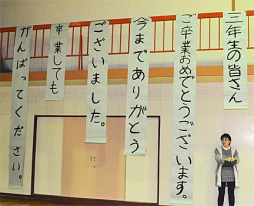 三年生の皆さん
ご卒業おめでとうございます。
今までありがとう
ございました。
卒業しても
がんばってください。